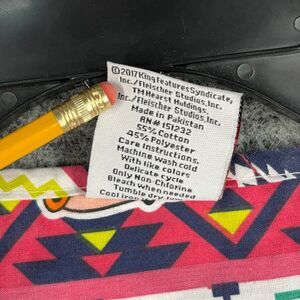 ©2017 King Features Syndicate,
Inc./Fleischer Studios, Inc.
TM Hearst Holdings,
Inc./Fleischer Studios, Inc.
Made in Pakistan
RN# 151232
55% Cotton
45% Polyester
Care Instructions:
Machine wash cold
With like colors
Delicate cycle
Only Non Chlorine
Bleach when needed
Tumble dry low
Cool iron